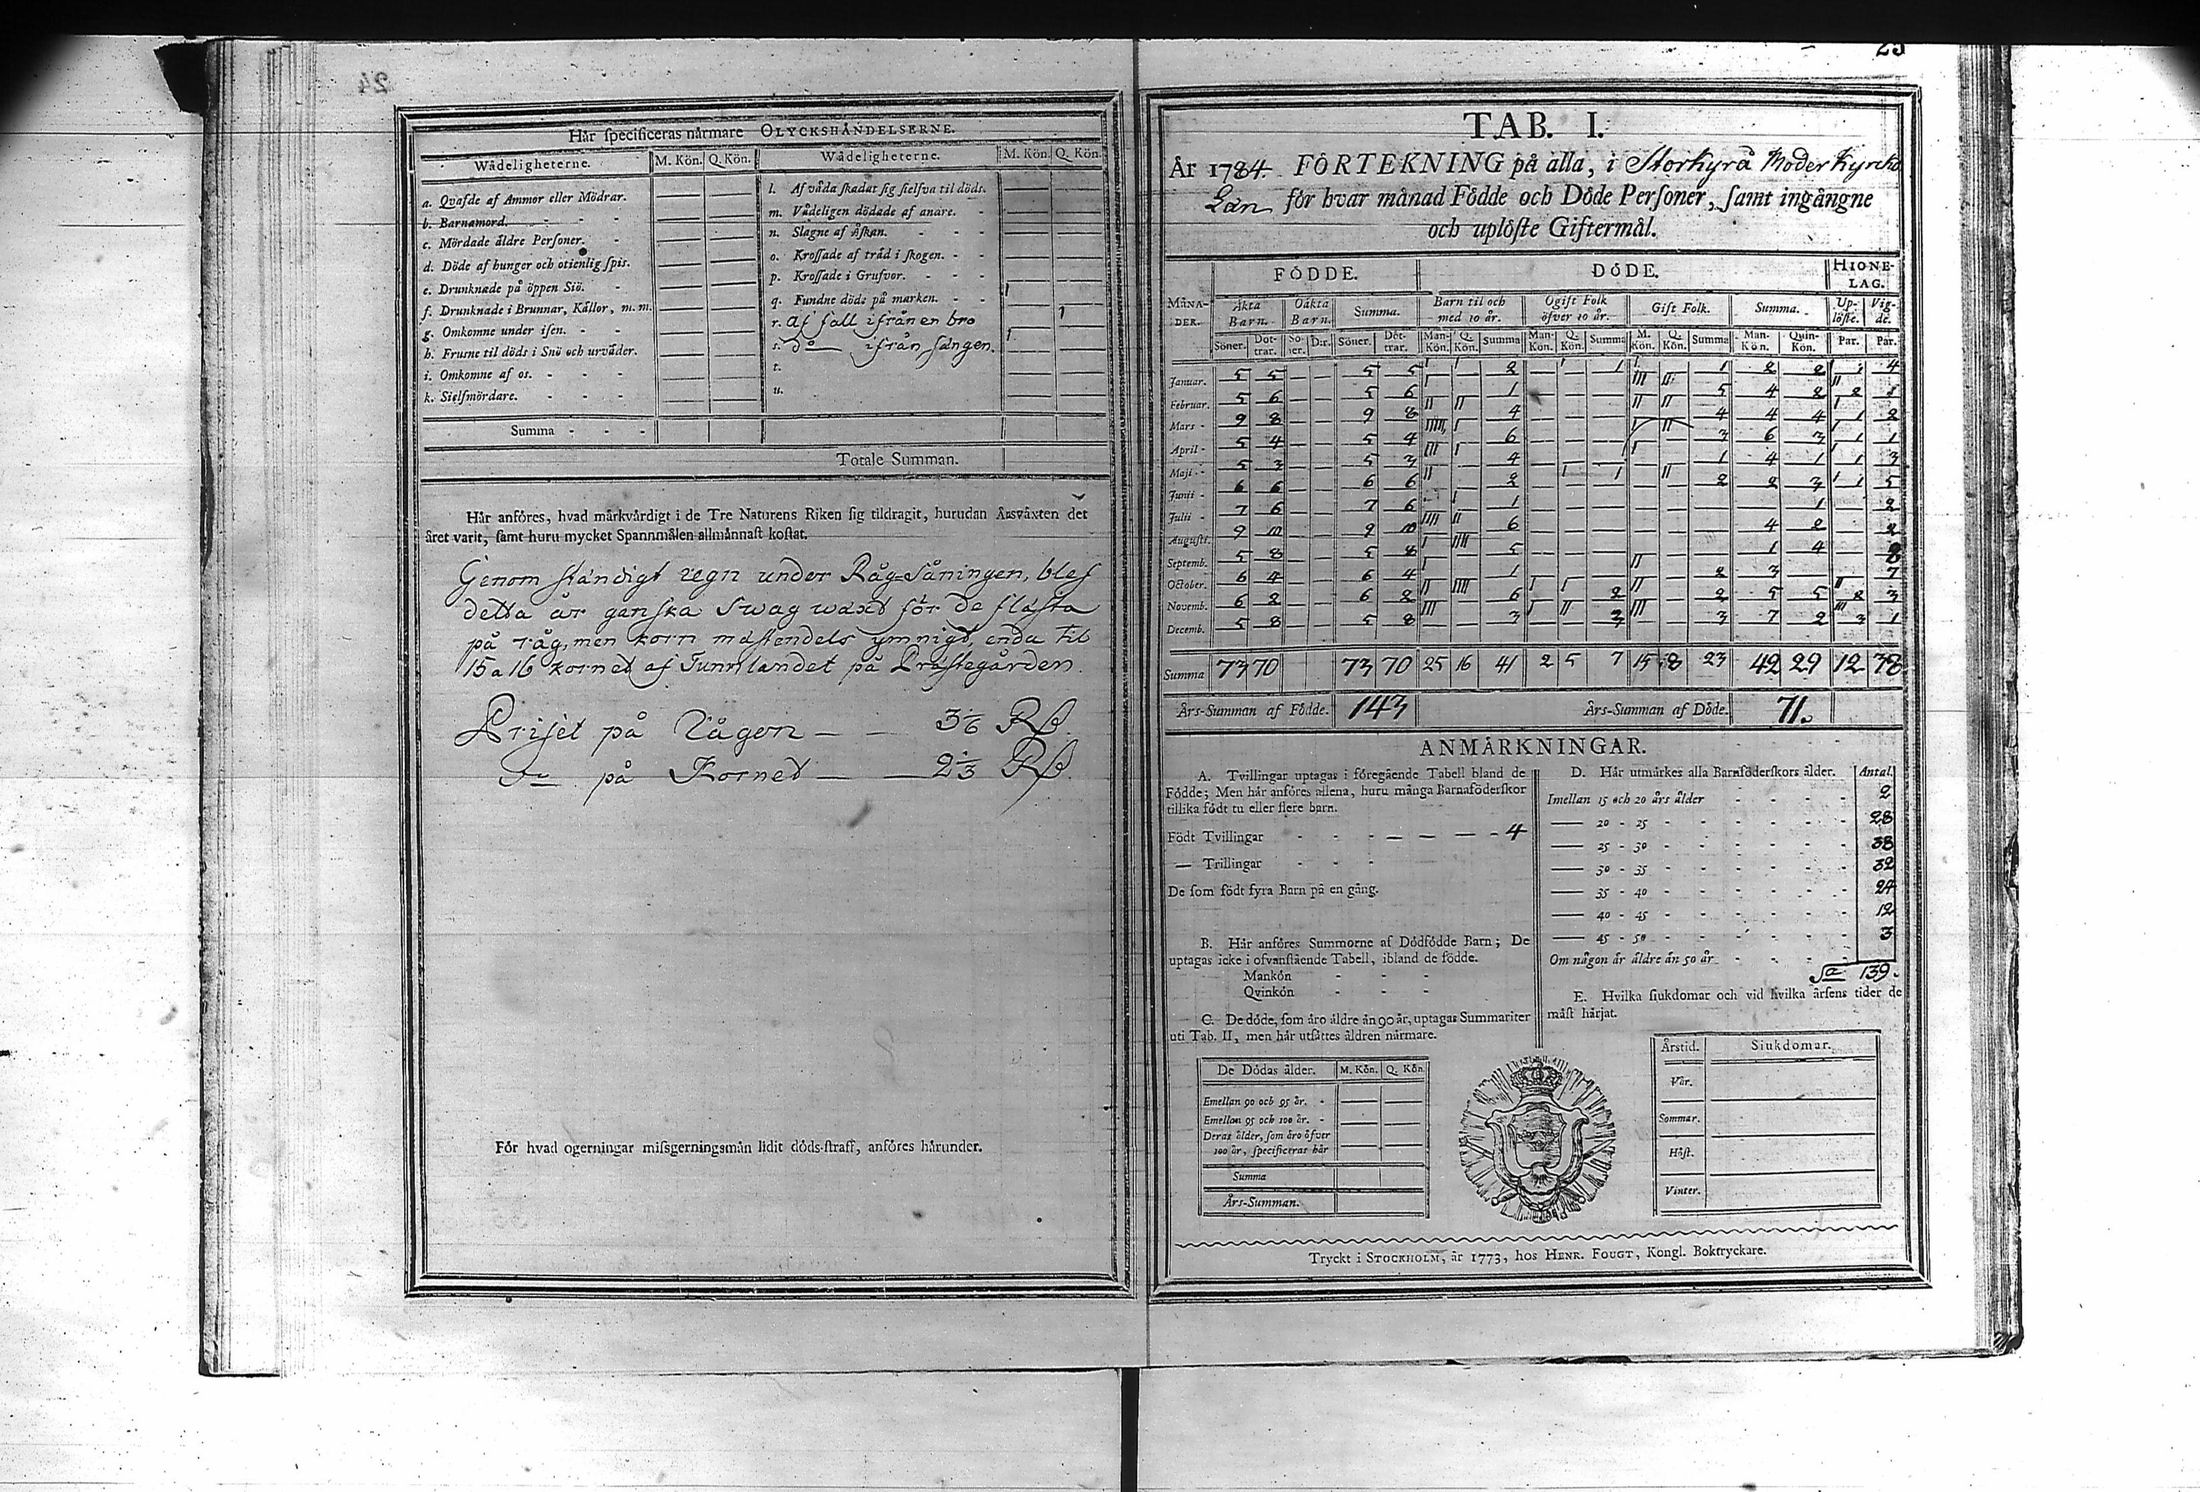 24
Hår specificeras nårmare OLYCKSHÅNDELSERNE.
Wådeligheterne. M. Kön. Q. Kön. Wådeligheterne. M. Kön. Q. Kön.
a. Qvafde af Ammor eller Mödrar.
b. Barnamord.
c. Mördade åldre Personer.
d. Döde af hunger och otienlig spis.
e. Drunknade på öppen Siö.
f. Drunknade i Brunnar, Kållor, m. m.
g. Omkomne under isen.
h. Frusne til döds i Snö och urvåder.
i. Omkomne af os.
k. Sielfmördare.
l. Af våda skadat sig sielfva til döds.
m. Vådeligen dödade af anare.
n. Slagne af Åskan.
o. Krossade af tråd i skogen.
p. Krossade i Grufvor.
q. Fundne döds på marken. 1
r. Af fall ifrån en bro 1
s. Do ifrån sängen. 1
t.
u.
Summa
Totale Summan.
Hår anföres, hvad mårkvårdigt i de Tre Naturens Riken sig tildragit, hurudan Årsvåxten det
året varit, samt huru mycket Spannmålen allmånnast kostat.
Genom ständigt regn under Råg-Såningen, blef
detta år ganska swag wäxt för de flästa
på råg, men korn mästendels ymnigt, enda til
15 a 16 kornet af Tunnlandet på Prästegården.
Priset på Rågen — — 3 1/6 R
Do på Kornet — — 2 1/3 R
För hvad ogerningar missgerningsmån lidit döds-straff, anföres hårunder.
25
TAB. I.
År 1784. FÖRTEKNING på alla, i Storkyrå Moder Kyrcko
Län för hvar månad Födde och Döde Personer, samt ingångne
och uplöste Giftermål.
MÅNADER. FÖDDE. DÖDE. HIONELAG.
Åkta Barn. Oåkta Barn. Summa. Barn til och med 10 år. Ogift Folk öfver 10 år. Gift Folk. Summa. Uplöste. Vigde.
Söner. Dottrar. Söner. D:r. Söner. Döttrar. Man-Kön. Q. Kön. Summa Man-Kön. Q. Kön. Summa M. Kön. Q. Kön. Summa Man-Kön. Quin-Kön. Par. Par.
Januar. 5 5 — — 5 5 2 1 1 2 2 1 4
Februar. 5 6 — — 5 6 1 5 4 2 2 1
Mars 9 8 — — 9 8 4 4 4 4 1 2
April 5 4 — — 5 4 6 3 6 3 1 1
Maji 5 3 — — 5 3 4 1 4 1 1 3
Junii 6 6 — — 6 6 2 1 2 2 3 1 5
Julii 7 6 — — 7 6 1 1 2
Augusti. 9 10 — — 9 10 6 4 2 2
Septemb. 5 8 — — 5 8 5 1 4 8
October. 6 4 — — 6 4 1 2 3 7
Novemb. 6 2 — — 6 2 6 2 2 5 5 2 3
Decemb. 5 8 — — 5 8 3 3 3 7 2 3 1
Summa 73 70 73 70 25 16 41 2 5 7 15 8 23 42 29 12 38
Års-Summan af Födde. 143 Års-Summan af Döde. 71.
ANMÅRKNINGAR.
A. Tvillingar uptagas i föregående Tabell bland de
Födde; Men hår anföres allena, huru många Barnaföderskor
tillika födt tu eller flere barn.
Födt Tvillingar 4
— Trillingar
De som födt fyra Barn på en gång.
B. Hår anföres Summorne af Dödfödde Barn; De
uptagas icke i ofvanstående Tabell, ibland de födde.
Mankön
Qvinkön
C. De döde, som åro åldre ån 90 år, uptagas Summariter
uti Tab. II, men hår utsåttes åldren nårmare.
De Dödas ålder. M. Kön. Q. Kön.
Emellan 90 och 95 år.
Emellan 95 och 100 år.
Deras ålder, som åro öfver
100 år, specificeras hår
Summa
Års-Summan.
D. Hår utmårkes alla Barnföderskors ålder. Antal.
Imellan 15 och 20 års ålder 2
— 20 - 25 28
— 25 - 30 38
— 30 - 35 32
— 35 - 40 24
— 40 - 45 12
— 45 - 50 3
Om någon år åldre ån 50 år
Sa 139.
E. Hvilka siukdomar och vid hvilka årsens tider de
måst hårjat.
Årstid. Siukdomar.
Vår.
Sommar.
Höst.
Vinter.
Tryckt i STOCKHOLM, år 1773, hos HENR. FOUGT, Kongl. Boktryckare.